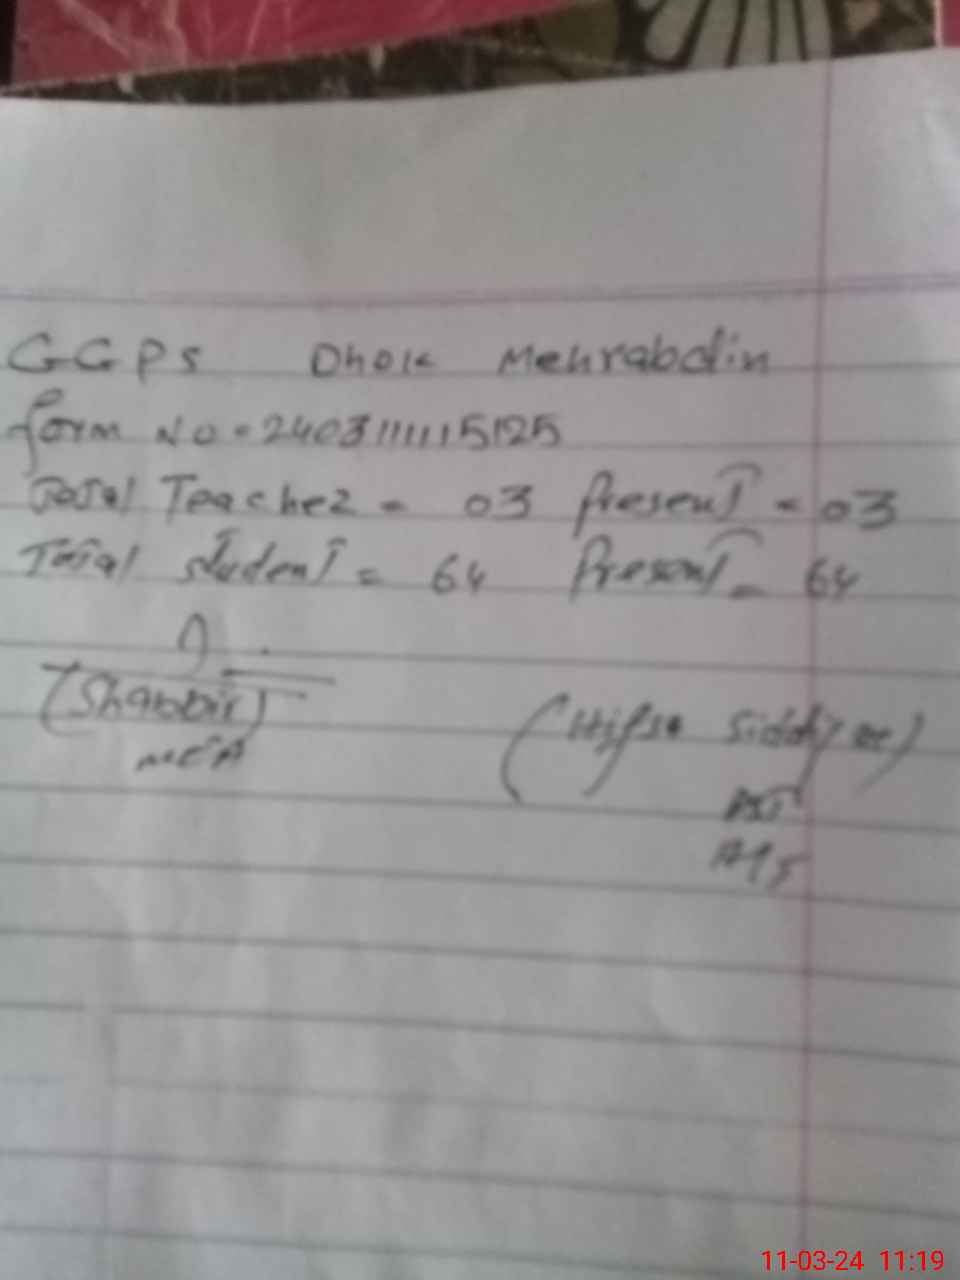 GGPS Dhok Mehrabdin
form No = 2403111115125
Total Teacher = 03 Present = 03
Total student = 64 Present = 64
(Shabbir)
MEA
(Hifsa Siddiqae)
PST
11-03-24 11:19